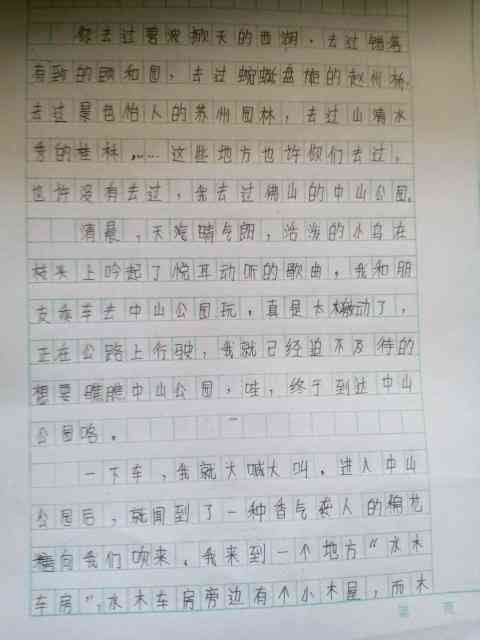 你去过碧波掀天的西湖，去过错落
有致的颐和园，去过蜿蜒盘旋的赵州桥，
去过景色怡人的苏州园林，去过山清水
秀的桂林，……这些地方也许你们去过，
也许没有去过，我去过佛山的中山公园。
清晨，天气晴气朗，活泼的小鸟在
枝头上吟起了悦耳动听的歌曲，我和朋
友乘车去中山公园玩，真是太激动了，
正在公路上行驶，我就已经迫不及待的
想要瞧瞧中山公园，哇，终于到达中山
公园咯。
一下车，我就大喊大叫。进入中山
公园后，就闻到了一种香气袭人的棉花
向我们吹来。我来到一个地方“水木
车房”，水木车房旁边有个小木屋，而木